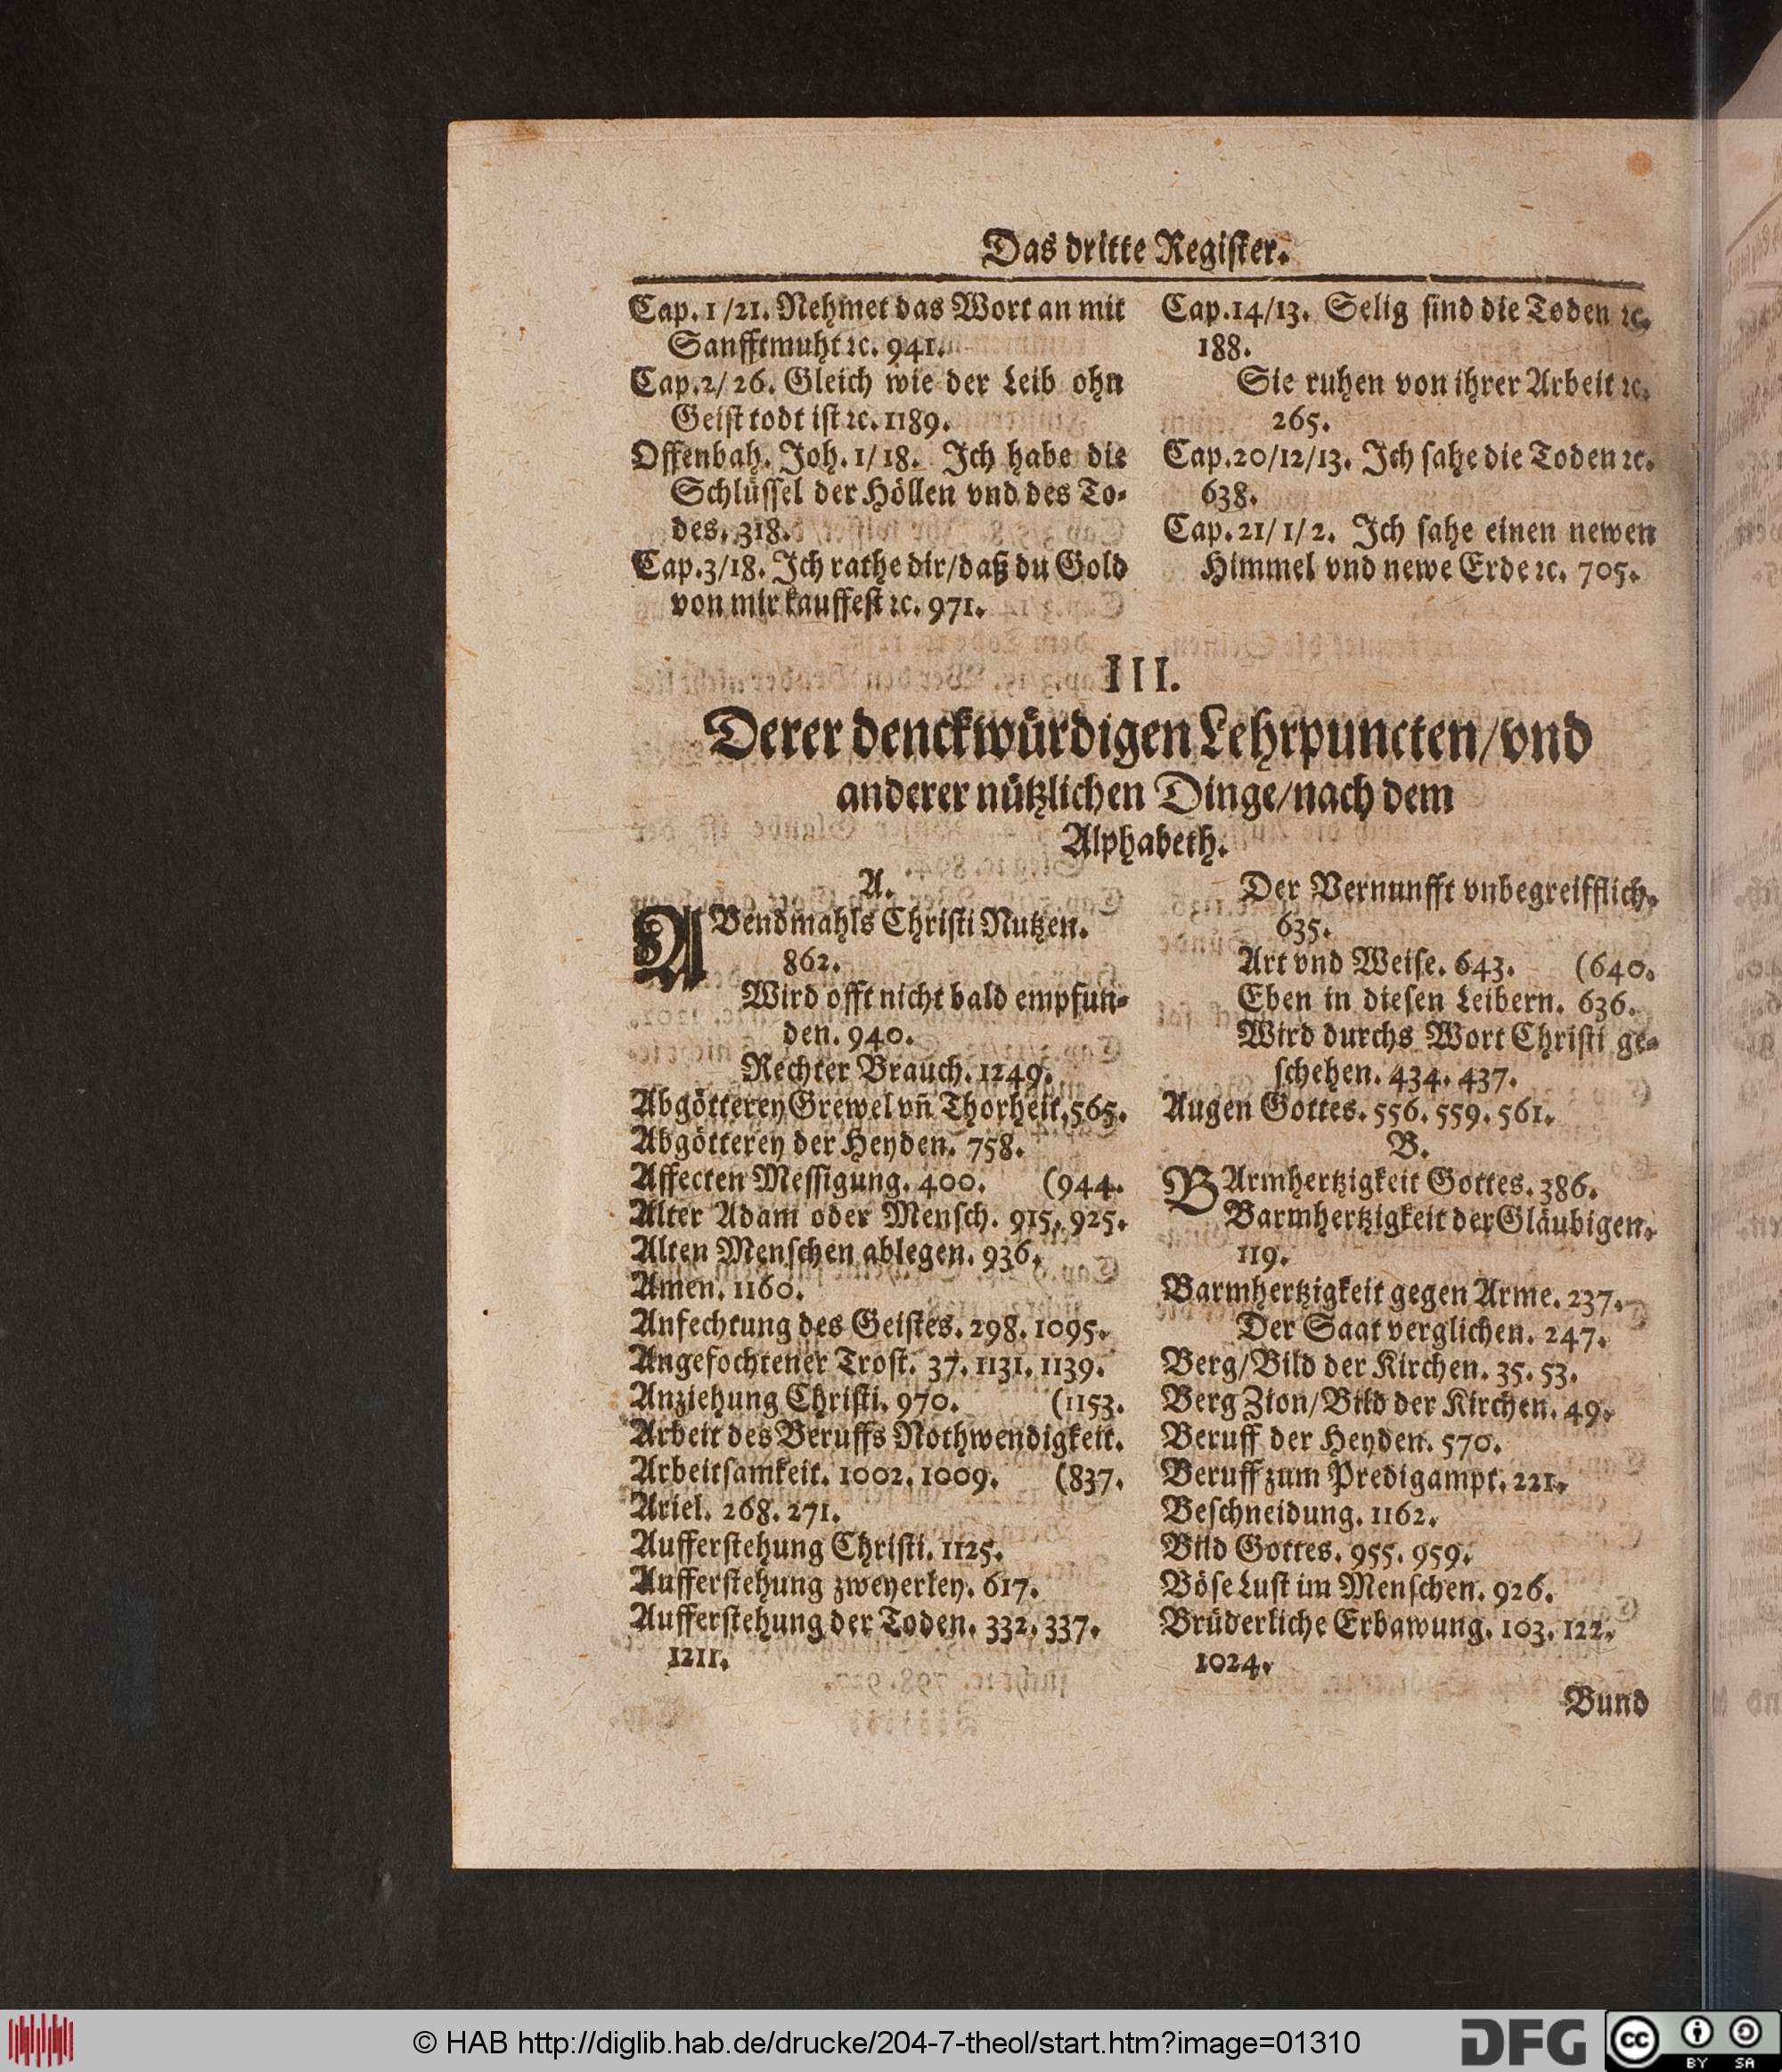 Das dritte Register.
Cap. 1/21. Nehmet das Wort an mit
Sanfftmuht ꝛc. 941.
Cap. 2/26. Gleich wie der Leib ohn
Geist todt ist ꝛc. 1189.
Offenbah. Joh. 1/18. Ich habe die
Schlüssel der Höllen vnd des To-
des. 318.
Cap. 3/18. Ich rathe dir/daß du Gold
von mir kauffest ꝛc. 971.
Cap. 14/13. Selig sind die Toden ꝛc.
188.
Sie ruhen von ihrer Arbeit ꝛc.
265.
Cap. 20/12/13. Ich sahe die Toden ꝛc.
638.
Cap. 21/1/2. Ich sahe einen newen
Himmel vnd newe Erde ꝛc. 705.
III.
Derer denckwürdigen Lehrpuncten/vnd
anderer nützlichen Dinge/nach dem
Alphabeth.
A.
ABendmahls Christi Nutzen.
862.
Wird offt nicht bald empfun-
den. 940.
Rechter Brauch. 1249.
Abgötterey Grewel vñ Thorheit. 565.
Abgötterey der Heyden. 758.
Affecten Messigung. 400. (944.
Alter Adam oder Mensch. 915. 925.
Alten Menschen ablegen. 936.
Amen. 1160.
Anfechtung des Geistes. 298. 1095.
Angefochtener Trost. 37. 1131. 1139.
Anziehung Christi. 970. (1153.
Arbeit des Beruffs Nothwendigkeit.
Arbeitsamkeit. 1002. 1009. (837.
Ariel. 268. 271.
Aufferstehung Christi. 1125.
Aufferstehung zweyerley. 617.
Aufferstehung der Toden. 332. 337.
1211.
Der Vernunfft vnbegreifflich.
635.
Art vnd Weise. 643. (640.
Eben in diesen Leibern. 636.
Wird durchs Wort Christi ge-
schehen. 434. 437.
Augen Gottes. 556. 559. 561.
B.
BArmhertzigkeit Gottes. 386.
Barmhertzigkeit der Gläubigen.
119.
Barmhertzigkeit gegen Arme. 237.
Der Saat verglichen. 247.
Berg/Bild der Kirchen. 35. 53.
Berg Zion/Bild der Kirchen. 49.
Beruff der Heyden. 570.
Beruff zum Predigampt. 221.
Beschneidung. 1162.
Bild Gottes. 955. 959.
Böse Lust im Menschen. 926.
Brüderliche Erbawung. 103. 122.
1024.
Bund
© HAB http://diglib.hab.de/drucke/204-7-theol/start.htm?image=01310
DFG
cc BY SA